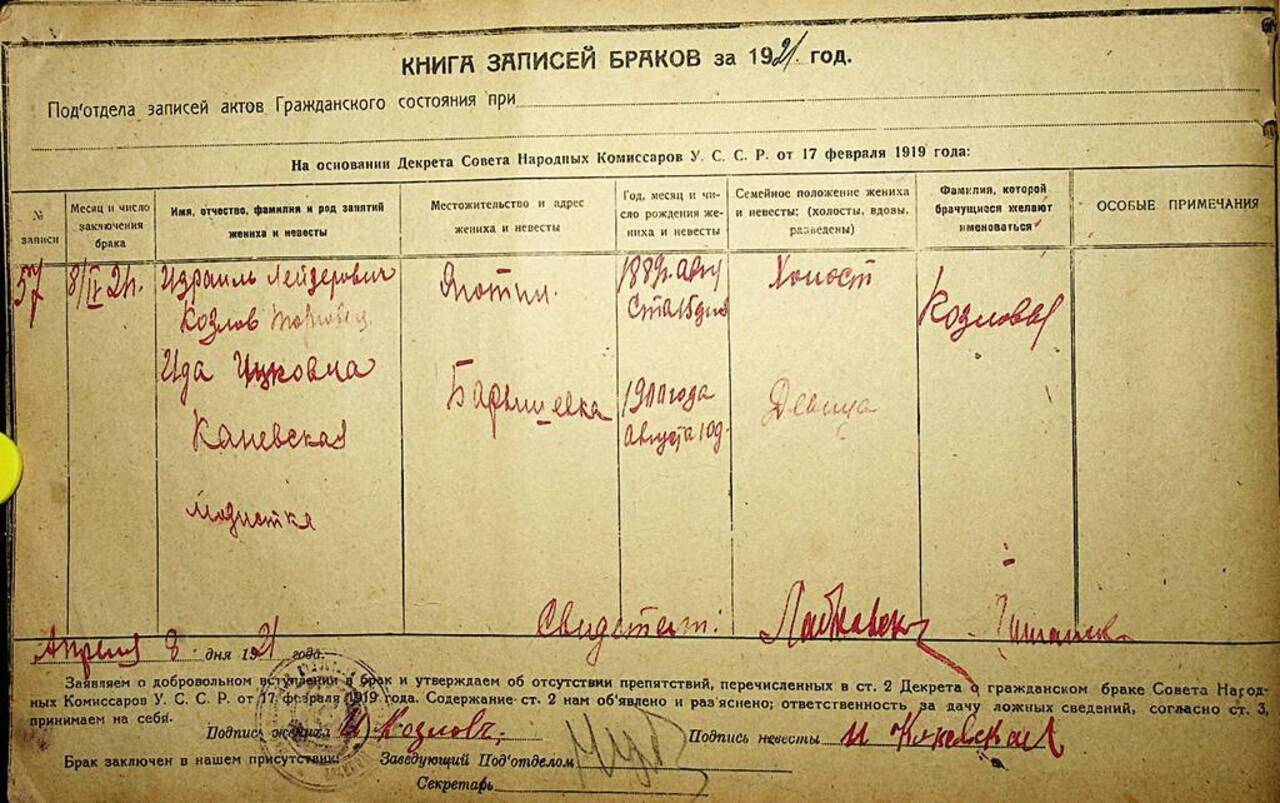 КНИГА ЗАПИСЕЙ БРАКОВ за 1921 год.
Под'отдела записей актов Гражданского состояния при
На основании Декрета Совета Народных Комиссаров У. С. С. Р. от 17 февраля 1919 года:
№ записи
Месяц и число заключения брака
Имя, отчество, фамилия и род занятий жениха и невесты
Местожительство и адрес жениха и невесты
Год, месяц и число рождения жениха и невесты
Семейное положение жениха и невесты: (холосты, вдовы, разведены)
Фамилия, которой брачущиеся желают именоваться
ОСОБЫЕ ПРИМЕЧАНИЯ
57 8/IV 21г. Израиль Лейзерович Яготин. 1889г. Авгу Холост
Козлов ста 15 дня Козловы
Ида Ицковна Барышевка 1900 года Девица
Каневская Августа 10д.
модистка
Свидетели:
Апреля 8 дня 1921 года.
Заявляем о добровольном вступлении в брак и утверждаем об отсутствии препятствий, перечисленных в ст. 2 Декрета о гражданском браке Совета Народ-
ных Комиссаров У. С. С. Р. от 17 февраля 1919 года. Содержание ст. 2 нам об'явлено и раз'яснено; ответственность за дачу ложных сведений, согласно ст. 3,
принимаем на себя.
Подпись жениха И Козловъ Подпись невесты И Каневская
Брак заключен в нашем присутствии: Заведующий Под'отделом
Секретарь